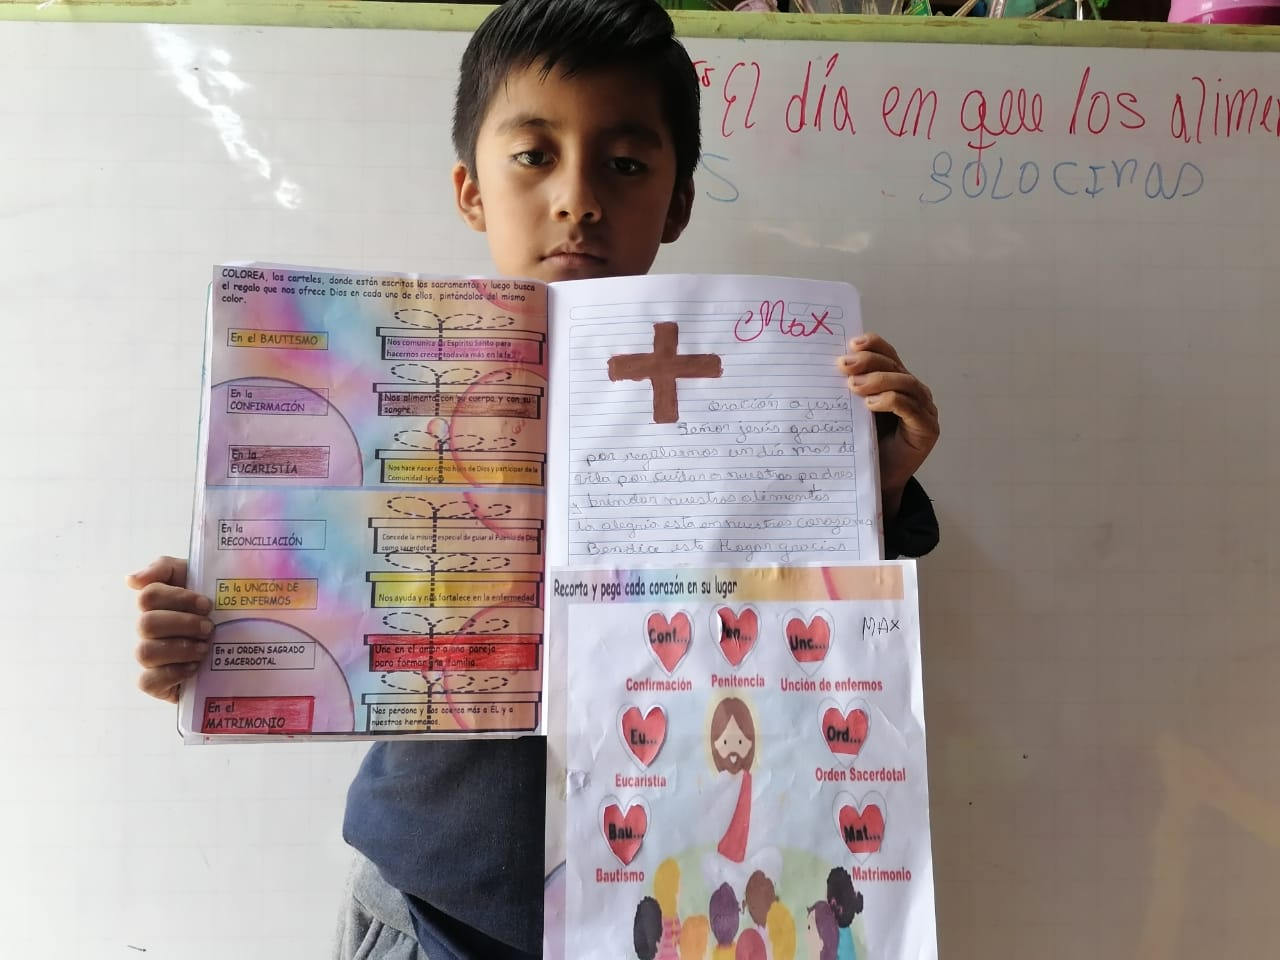 El día en que los alime
S
GOLOCINAS
COLOREA, los carteles, donde están escritos los sacramentos y luego busca
el regalo que nos ofrece Dios en cada uno de ellos, pintándolos del mismo
color.
En el BAUTISMO
Nos comunica Espíritu Santo para
hacernos crecer todavía más en la fe
En la
CONFIRMACIÓN
Nos alimenta con su cuerpo y con su
sangre.
En la
EUCARISTÍA
Nos hace nacer como hijos de Dios y participar de la
Comunidad -Iglesia
En la
RECONCILIACIÓN
Concede la misión especial de guiar al Pueblo de Dios
como sacerdotes
En la UNCIÓN DE
LOS ENFERMOS
Nos ayuda y nos fortalece en la enfermedad
En el ORDEN SAGRADO
O SACERDOTAL
Une en el amor a una pareja
para formar una familia.
En el
MATRIMONIO
Nos perdona y nos acerca más a ÉL y a
nuestros hermanos.
Max
Oración a jesús
Señor jesús gracias
por regalarnos un día mas de
vida por cuidar a nuestros padres
y brindar nuestros alimentos
la alegria esta en nuestros corazones
Bendice este Hogar gracias
Recorta y pega cada corazón en su lugar
MAx
Conf...
Pen...
Unc...
Confirmación
Penitencia
Unción de enfermos
Eu...
Ord...
Eucaristía
Orden Sacerdotal
Bau...
Mat...
Bautismo
Matrimonio